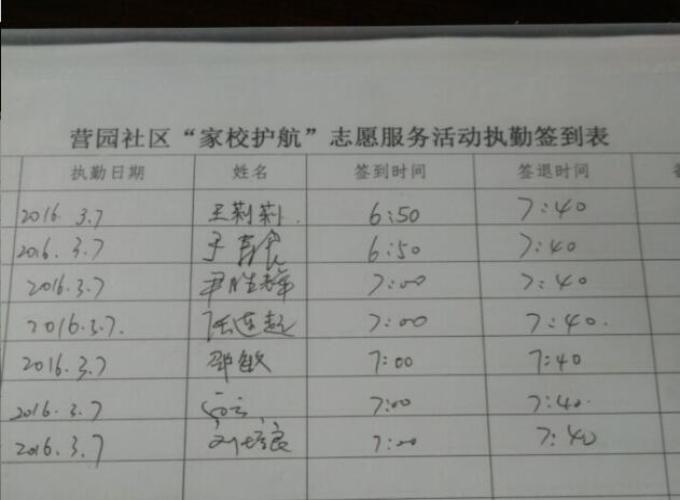 营园社区“家校护航”志愿服务活动执勤签到表
执勤日期 姓名 签到时间 签退时间
2016.3.7 王莉莉. 6:50 7:40
2016.3.7 6:50 7:40
2016.3.7 尹胜峰 7:00 7:40
2016.3.7. 任连起 7:00 7:40.
2016.3.7 邵敏 7:00 7:40
2016.3.7 7:00 7:40.
2016.3.7 刘培良 7:00 7:40